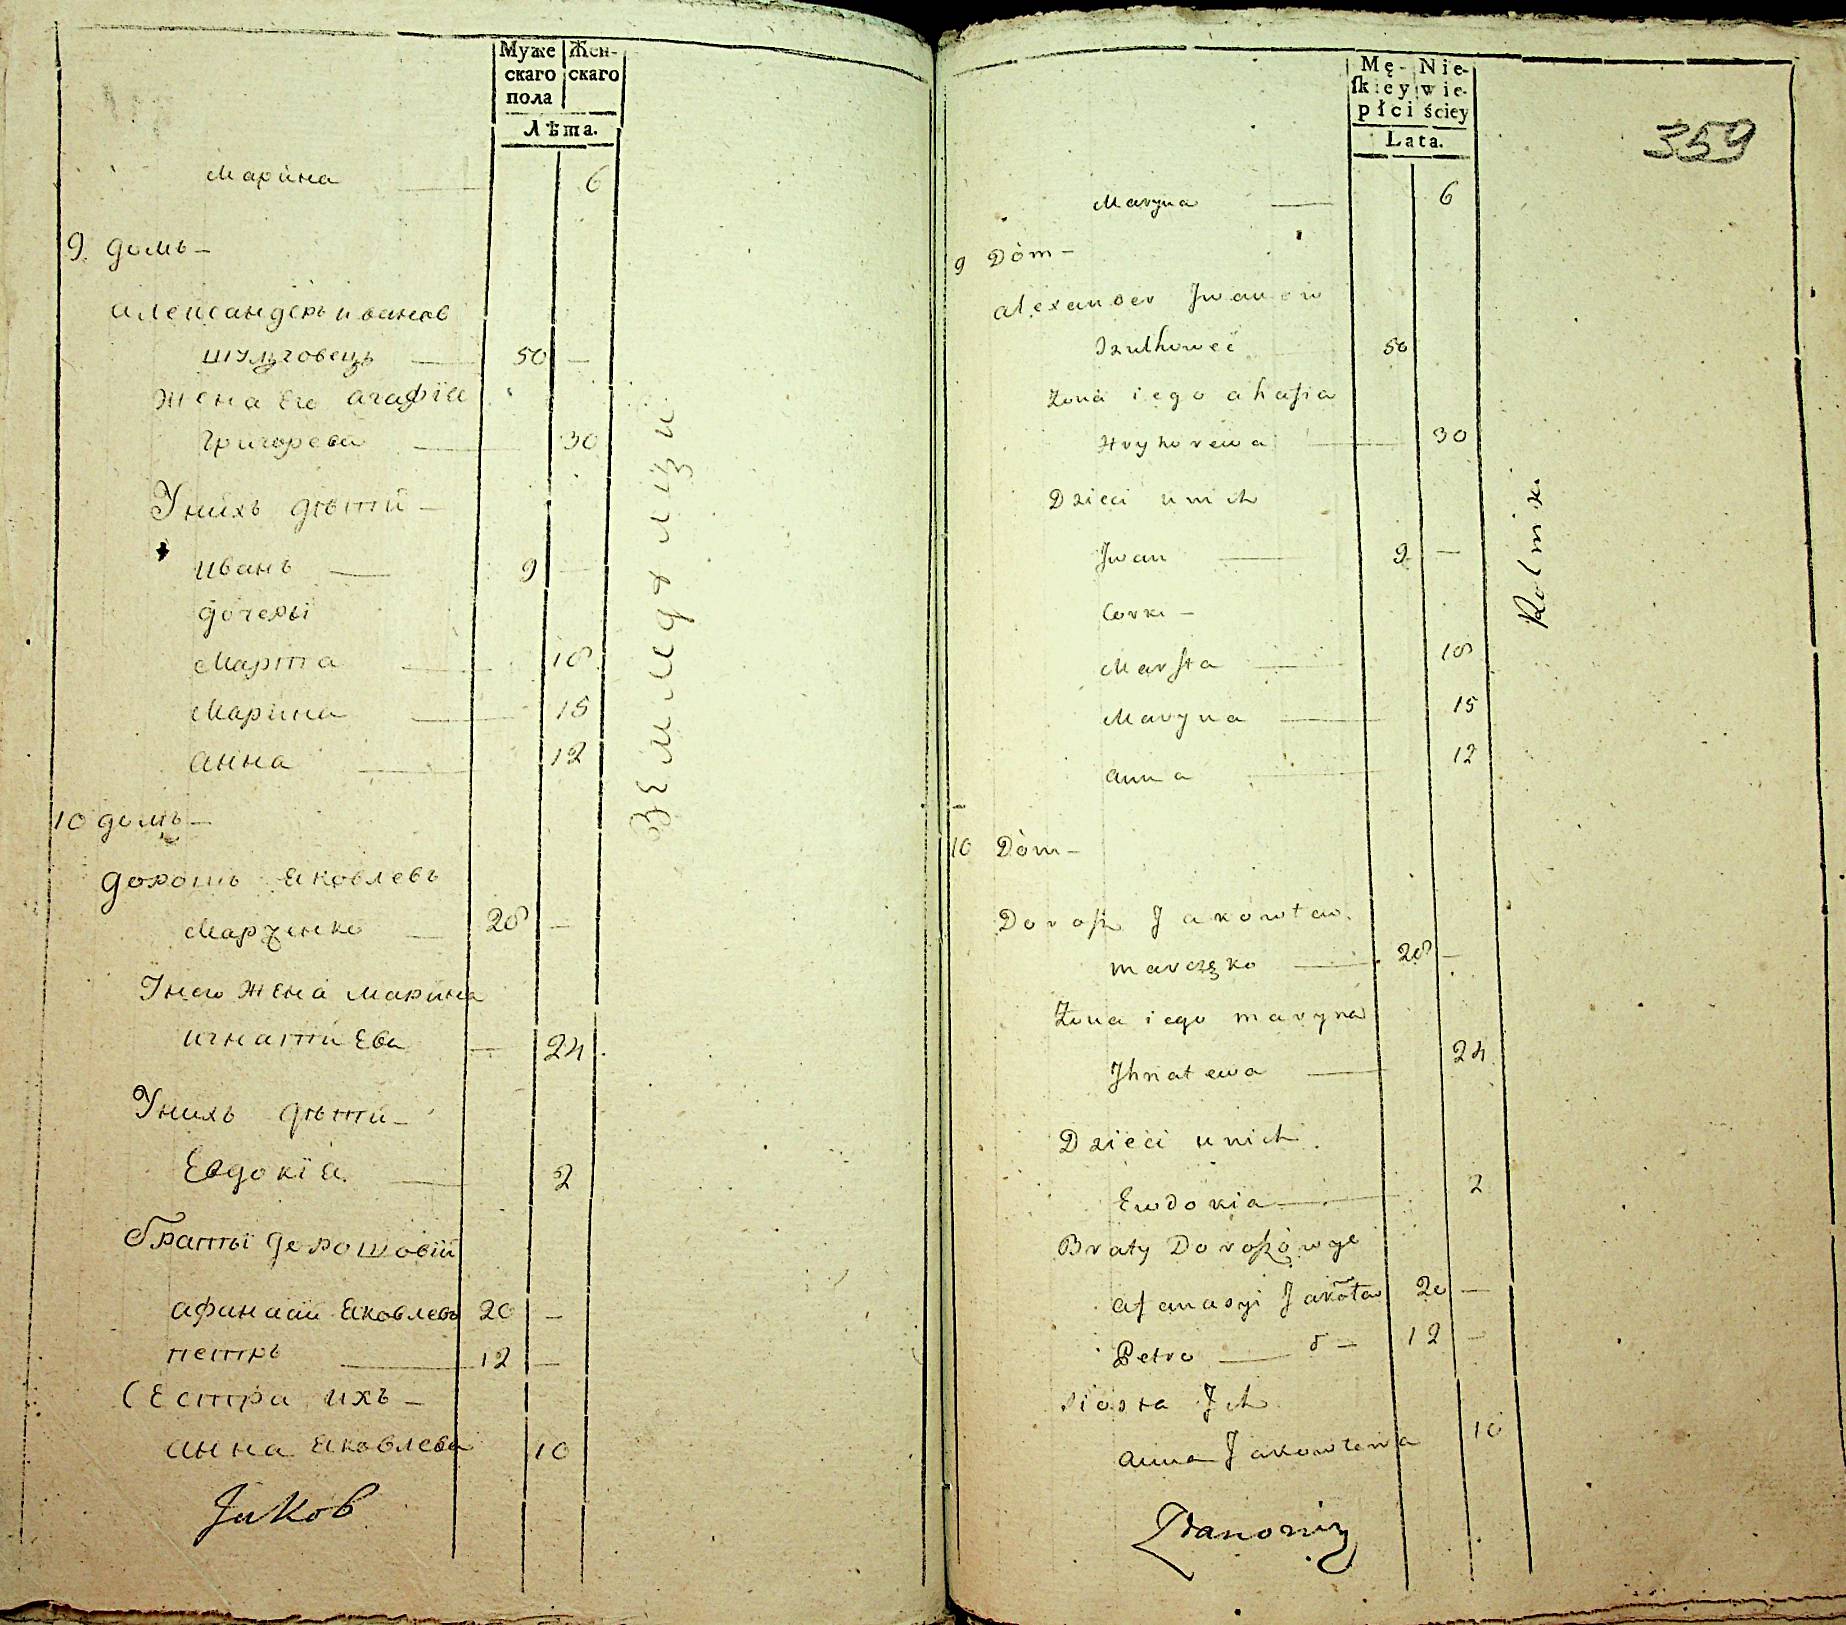 Муже Жен-
скаго скаго
пола
Лѣта.
Марина 6
9. домъ —
александеръ иванов
шулговець 50 —
жена его агафiя
григорева 30
Унихъ дѣти —
иванъ — 9 —
дочеры
Марта 18
Марина 15
анна 12
10 домъ —
дорошъ яковлевъ
Марченко — 28 —
Унего жена марина
игнатиева — 24
Унихъ дѣти —
Евдокiя 2
браты дорошовiи
афанасiй яковлевъ 20 —
петръ 12 —
Сестра ихъ —
анна яковлева 10
земледѣлци
Jakob
Mę- Nie-
ſkiey wie-
płci ściey
Lata.
359
Maryna — 6
9 Dòm —
alexander Jwanow
Szulhoweć 50
Żona iego ahafia
Hryhorewa 30
Dzieci unich
Jwan — 9 —
Corki —
Marfta 18
Maryna 15
anna 12
10 Dòm —
Doroſz Jakowław
marczęko 28 —
Żona iego maryna
Jhnatewa 24
Dzieci unich
Ewdokia 2
Braty Doroſzowye
afanasyi Jakoław 20 —
Petro — 12 —
siosta Jch
anna Jakowlewa 10
Rolnik